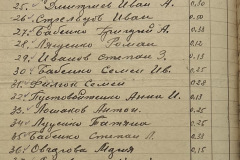 25. Дмитриев Иван А. 0,10
26. Стрельцов Иван 0,50
27. Бабенко Григорий А. 0,33
28. Ляценко Роман 0,12
29. Иванов Степан З. 0,13
30. Бабенко Семен Ив. 0,25
31. Филюк Семен 0,28
32. Пустовойтенко Анна И. 0,13
33. Антон 0,25
34. Луценко Татьяна 0,25
35. Бабенко Степан Л. 0,31
36. Мария 0,15